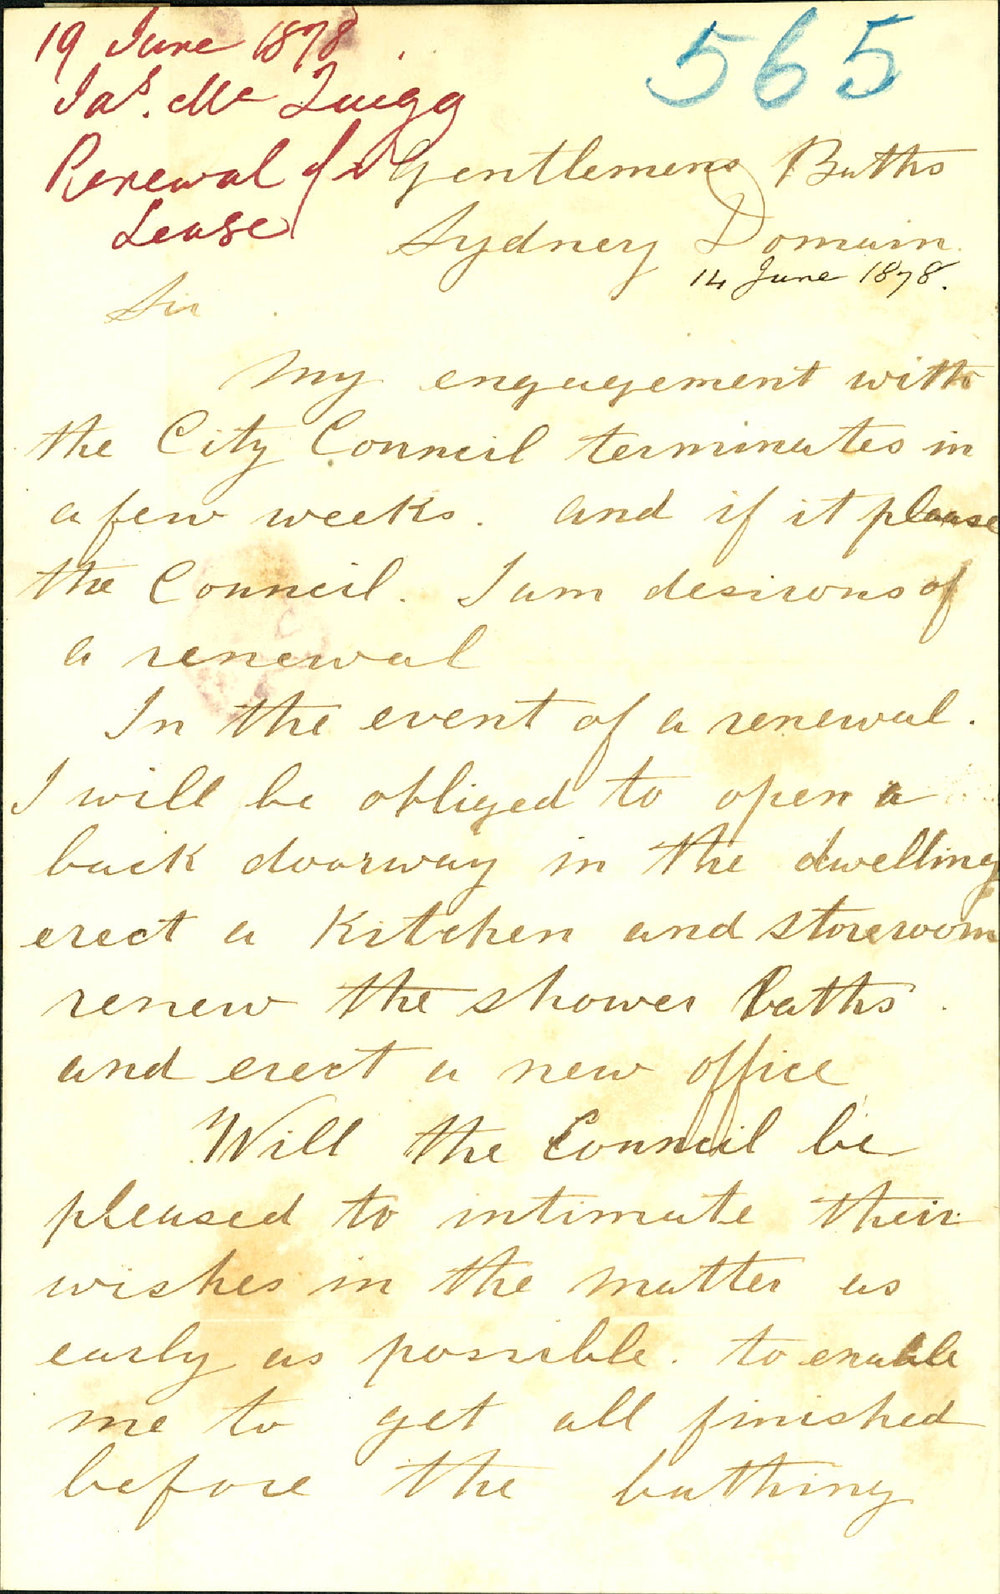 19 June 1878
565
Jas. Mc Quigg
Renewal of
Lease
Gentlemens Baths
Sydney Domain
14 June 1878.
Sir
My engagement with
the City Council terminates in
a few weeks. and if it please
the Council. I am desirous of
a renewal
In the event of a renewal.
I will be obliged to open a
back doorway in the dwelling
erect a Kitchen and storeroom
renew the shower baths.
and erect a new office
Will the Council be
pleased to intimate their
wishes in the matter as
early as possible. to enable
me to get all finished
before the bathing